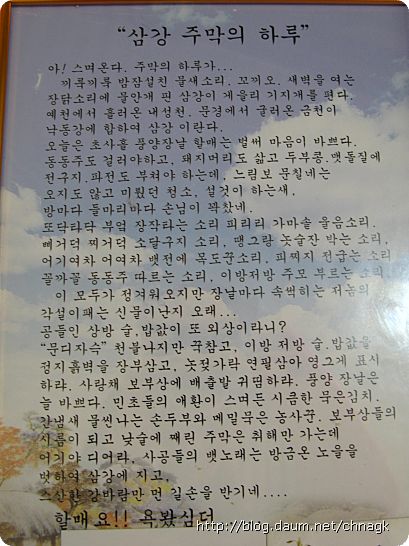 “삼강 주막의 하루”
아! 스며온다. 주막의 하루가...
끼룩끼룩 밤잠설친 물새소리. 꼬끼오. 새벽을 여는
장닭소리에 물안개 핀 삼강이 게을리 기지개를 편다.
예천에서 흘러온 내성천. 문경에서 굴러온 금천이
낙동강에 합하여 삼강 이란다.
오늘은 초사흘 풍양장날 할매는 벌써 마음이 바쁘다.
동동주도 걸러야하고, 돼지머리도 삶고 두부콩.맷돌질에
전구지.파전도 부쳐야 하는데, 느림보 문칠네는
오지도 않고 미웠던 천소, 설것이 하는새.
방마다 들마리마다 손님이 꽉찼네.
또닥타닥 부엌 장작타는 소리 피리리 가마솥 울음소리.
삐거덕 찌거덕 소달구지 소리, 땡그랑 놋술잔 막는 소리.
어기여차 어여차 뱃전에 목도꾼소리. 피찌지 전굽는 소리
꼴까꼴 동동주 따르는 소리, 이방저방 주모 부르는 소리
이 모두가 정겨워오지만 장날마다 속썩히는 저놈의
각설이패는 신물이난지 오래...
공들인 상방 술.밥값이 또 외상이라니?
“문디자슥” 천불나지만 꾹참고, 이방 저방 술.밥값을
정지흙벽을 장부삼고, 놋젓가락 연필삼아 영그게 표시
하랴. 사랑채 보부상에 배출발 귀띔하랴. 풍양 장날은
늘 바쁘다. 민초들의 애환이 스며든 시큼한 묵은김치.
간냄새 물씬나는 손두부와 메밀묵은 농사꾼. 보부상들의
시름이 되고 낮술에 째린 주막은 취해만 가는데
어기야 디어라, 사공들의 뱃노래는 방금온 노을을
벗하여 삼강에 지고,
스산한 강바람만 먼 길손을 반기네....
할매 요!! 욕봤심더
http://blog.daum.net/chnagk